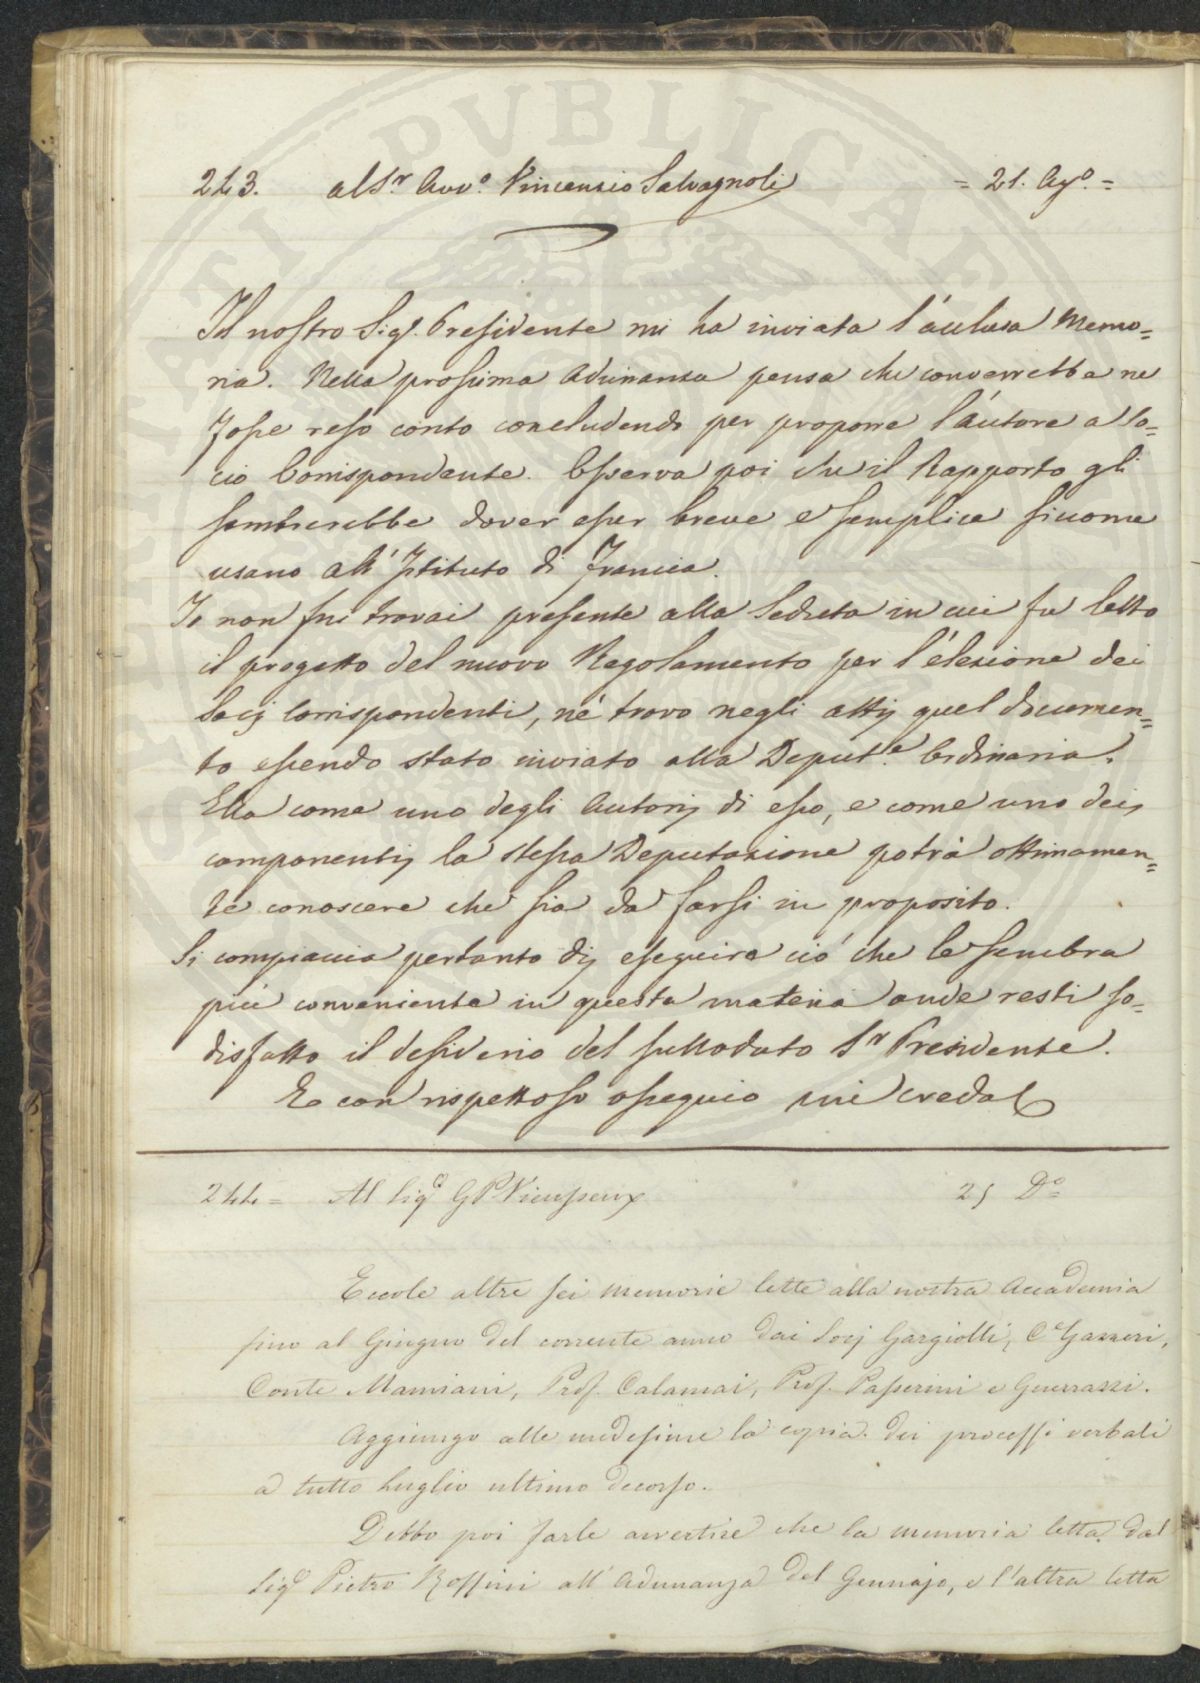 243. al Sr Avvo. Vincenzio Salvagnoli = 21. Ago. =
Il nostro Sigr. Presidente mi ha inviata l'acclusa Memo=
ria. Nella prossima Adunanza pensa che converrebbe ne
fosse reso conto concludendo per proporre l'autore a So=
cio Corrispondente. Osserva poi che il Rapporto gli
sembrerebbe dover esser breve e semplice siccome
usano all'Istituto di Francia.
Io non mi trovai presente alla Seduta in cui fu letto
il progetto del nuovo Regolamento per l'elezione dei
Socj Corrispondenti, né trovo negli atti quel documen=
to essendo stato inviato alla Deput.e Ordinaria.
Ella come uno degli Autori di esso, e come uno dei
componenti la stessa Deputazione potrà ottimamen=
te conoscere che sia da farsi in proposito.
Si compiaccia pertanto di eseguire ciò che le sembra
più conveniente in questa materia onde resti so=
disfatto il desiderio del sullodato Sr Presidente.
E con rispettoso ossequio mi creda
244 = Al Sigr GP Vieusseux 25 Do=
Eccole altre sei memorie lette alla nostra Accademia
fino al Giugno del corrente anno dai Socj Gargiolli, Ce Gazzeri,
Conte Mamiani, Prof. Calamai, Prof. Passerini e Guerrazzi.
Aggiungo alle medesime la copia dei processi verbali
a tutto Luglio ultimo decorso.
Debbo poi farle avvertire che la memoria letta dal
Sigr Pietro Rossini all'Adunanza del Gennajo, e l'altra letta